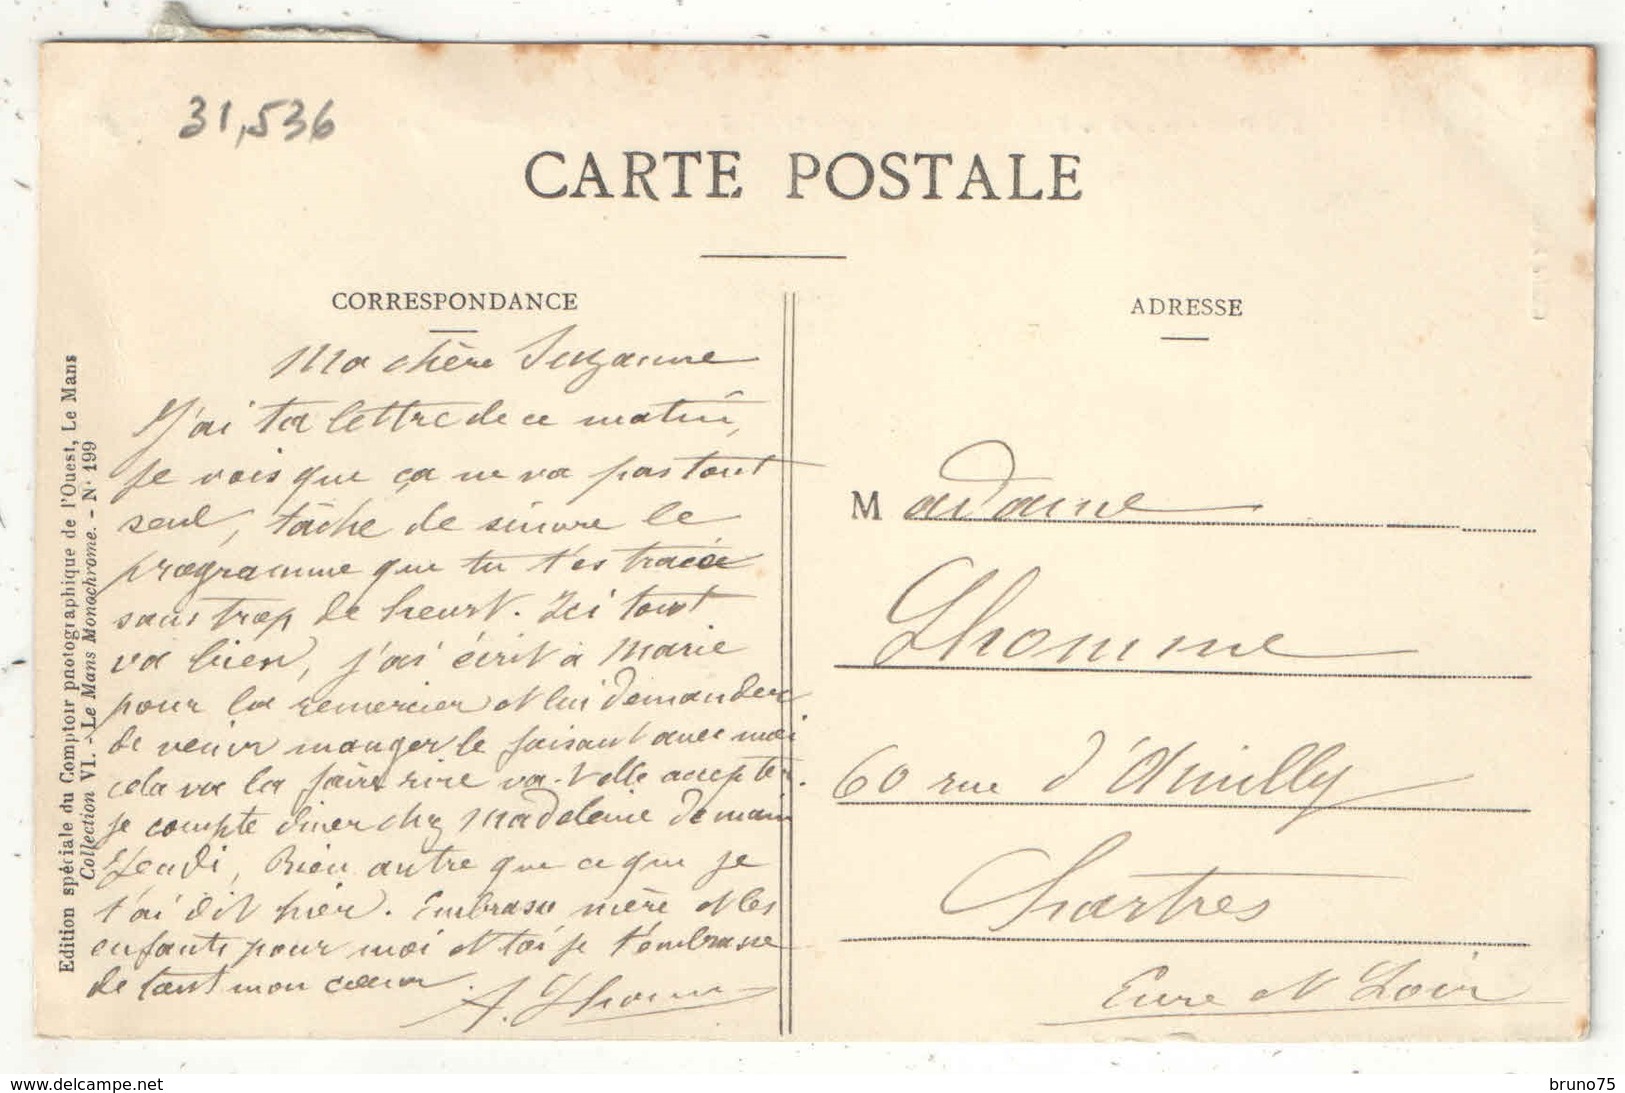 31,536
CARTE POSTALE
CORRESPONDANCE
ADRESSE
Edition spéciale du Comptoir photographique de l'Ouest, Le Mans
Collection VI. - Le Mans Monochrome. - N° 199
Ma chère Suzanne
J'ai ta lettre de ce matin,
je vois que ça ne va pas tout
seul, tâche de suivre le
programme que tu t'es tracée
sans trop de heurt. Ici tout
va bien, j'ai écrit à Marie
pour la remercier et lui demander
de venir manger le faisant avec moi
cela va la faire rire va-t-elle accepter.
je compte diner chez Madeleine demain
Jeudi, Rien autre que ce que je
t'ai dit hier. Embrasse mère et les
enfants pour moi et toi je t'embrasse
de tout mon cœur.
A. Lhomme
Madame
Lhomme
60 rue d'Amilly
Chartres
Eure et Loir
www.delcampe.net
bruno75